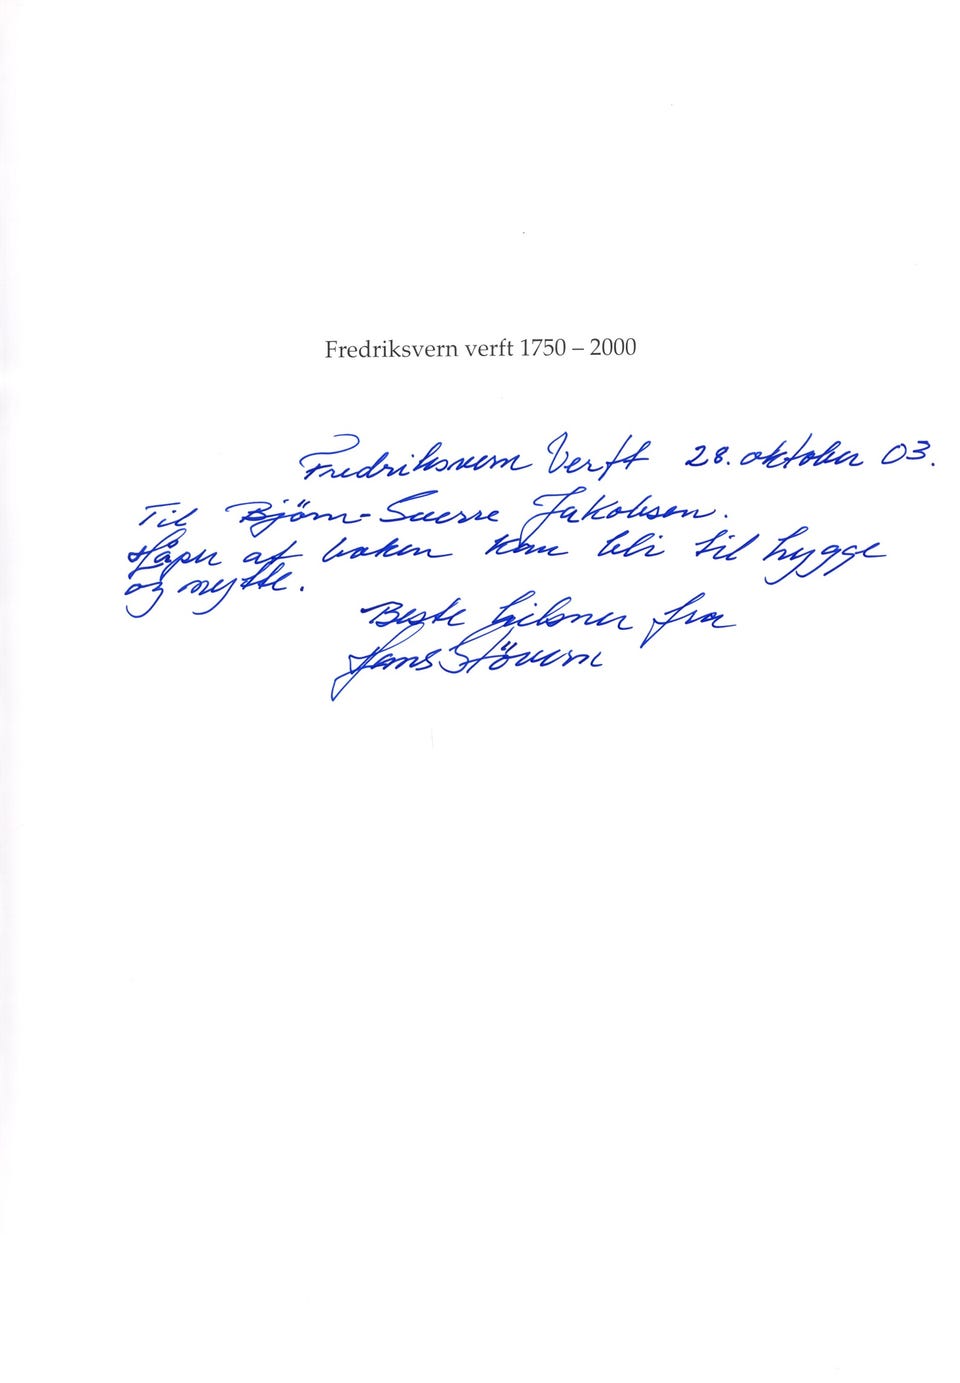 Fredriksvern verft 1750 – 2000
Fredriksvern Verft 28. oktober 03.
Til Björn-Sverre Jakobsen.
Håper at boken kan bli til hygge
og nytte.
Beste hilsner fra
Hans Støvern